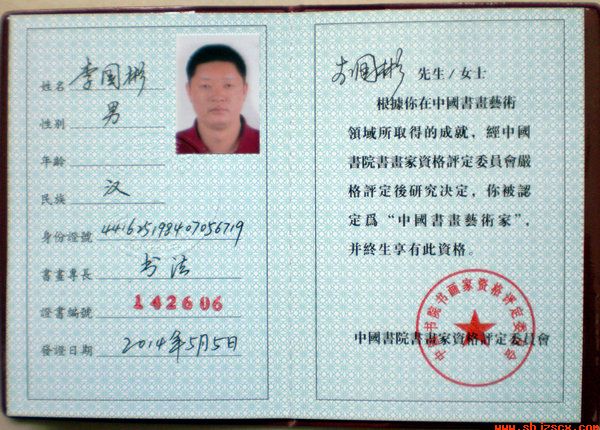 姓名 李国彬
性别 男
年齡
民族 汉
身份證號 441625198407056719
書畫專長 书法
證書編號 142606
發證日期 2014年5月5日
李国彬 先生/女士
根據你在中國書畫藝術
領域所取得的成就，經中國
書院書畫家資格評定委員會嚴
格評定後研究決定，你被認
定爲“中國書畫藝術家”，
并終生享有此資格。
中國書院書畫家資格評定委員會
中国书院书画家资格评定委员会
www.sbjzscx.com